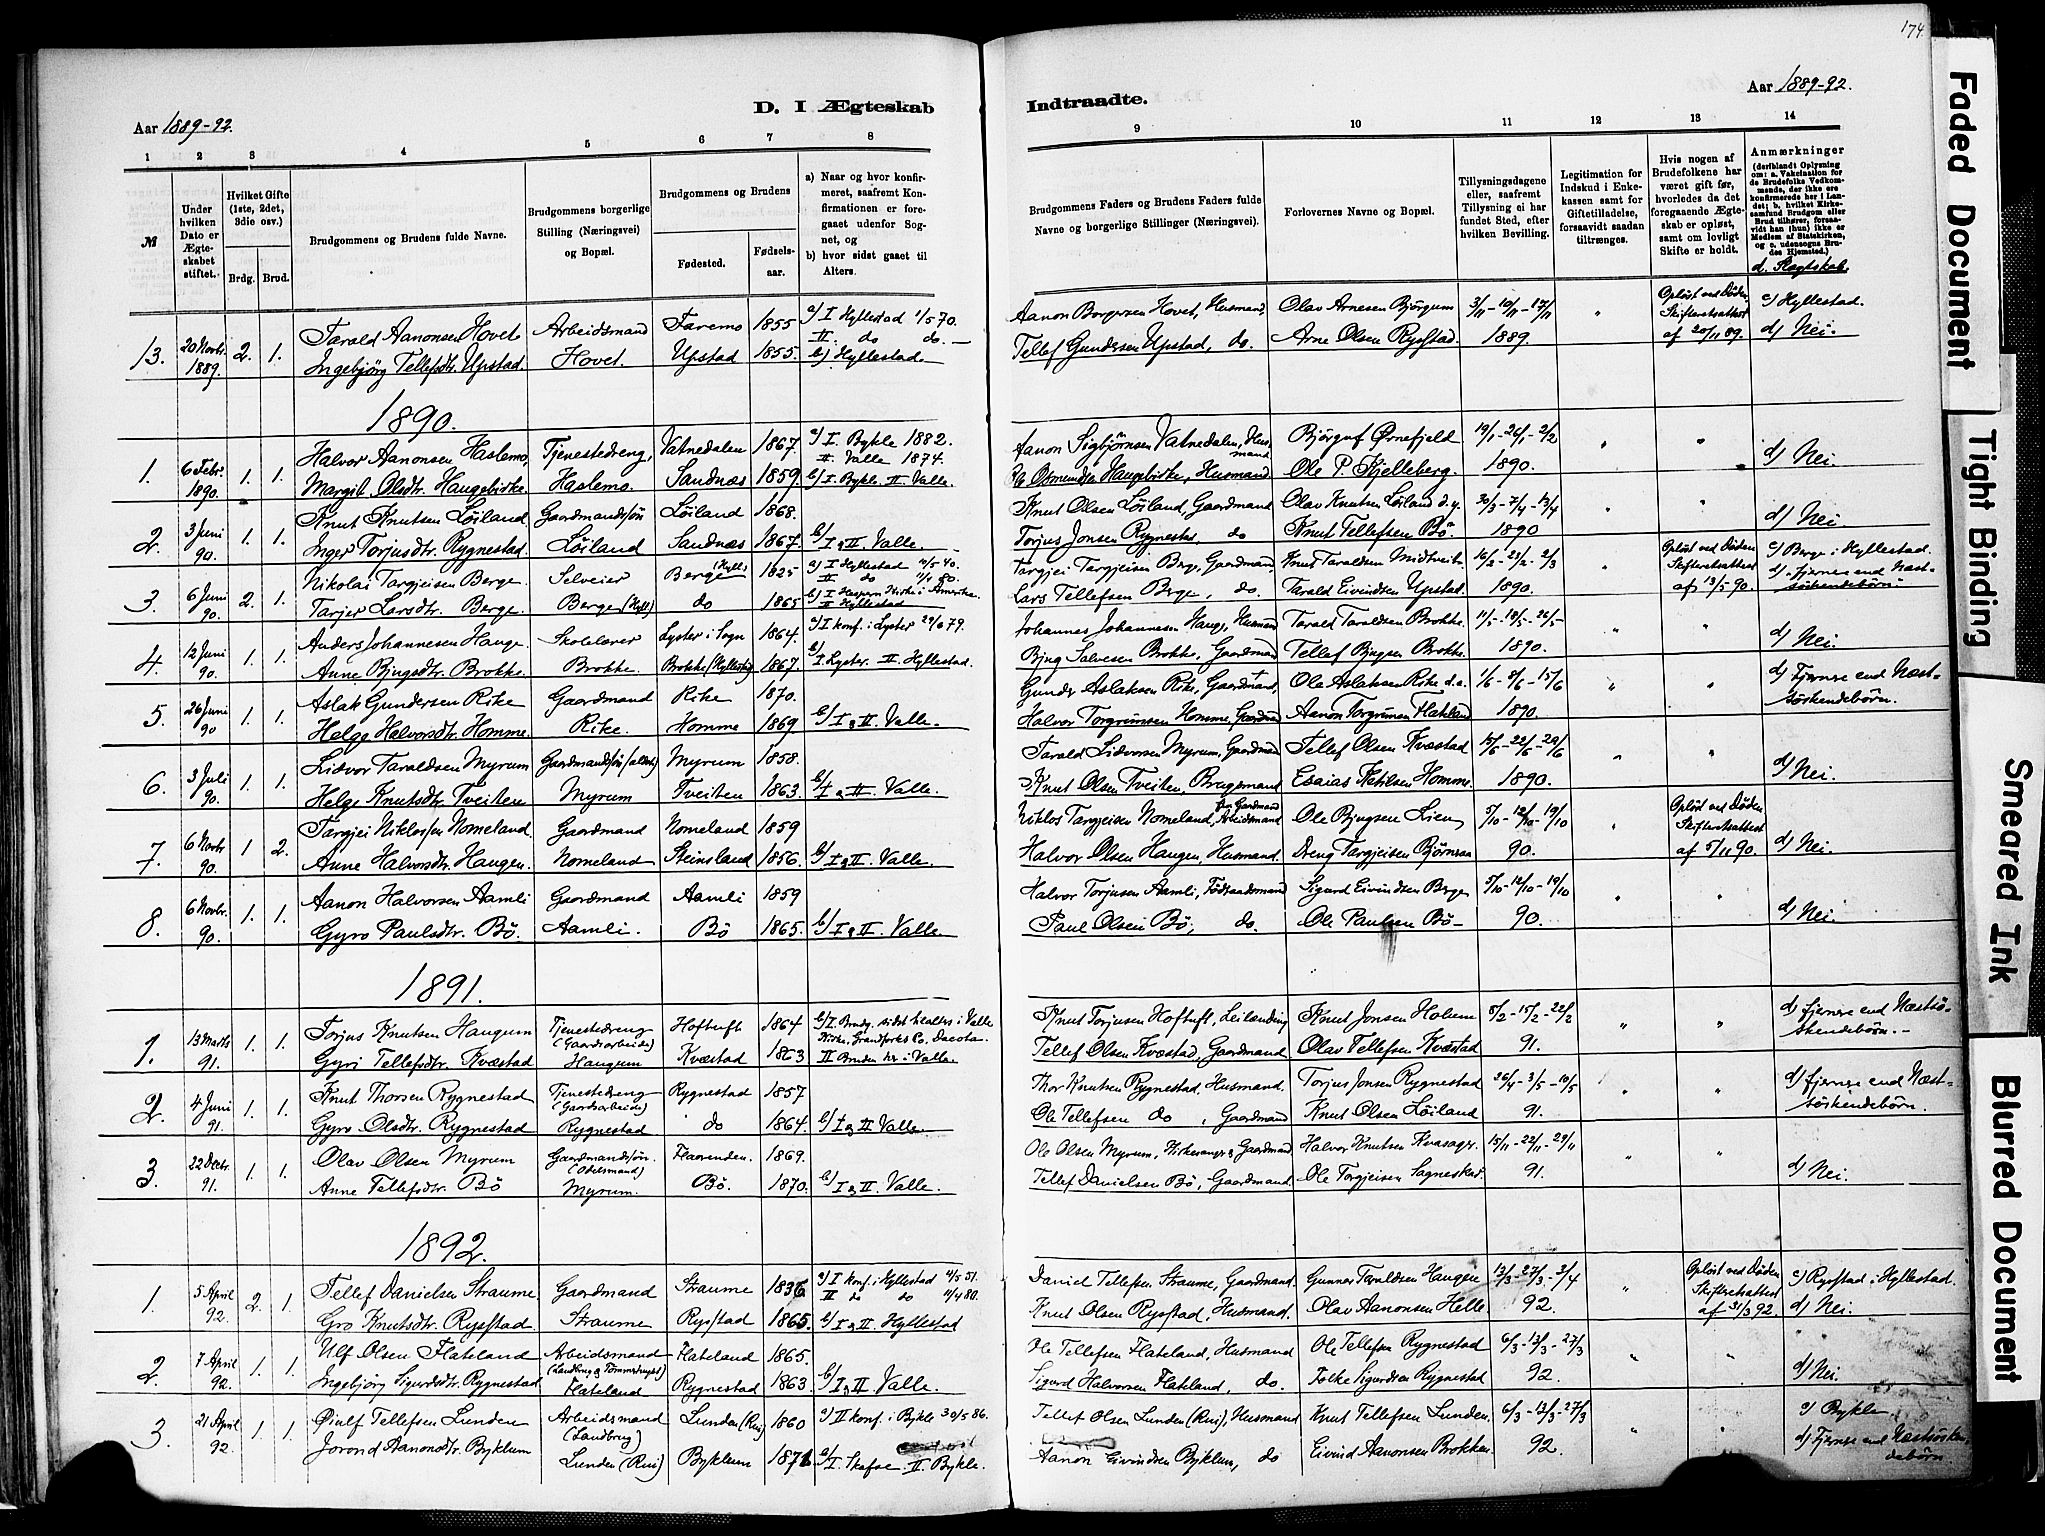 174
Aar 1889-92.
D. I Ægteskab
Indtraadte.
Aar 1889-92.
1 2 3 4 5 6 7 8
9 10 11 12 13 14
№
Under hvilken Dato er Ægteskabet stiftet.
Hvilket Gifte (1ste, 2det, 3die osv.)
Brdg. Brud.
Brudgommens og Brudens fulde Navne.
Brudgommens borgerlige Stilling (Næringsvei) og Bopæl.
Brudgommens og Brudens
Fødested. Fødselsaar.
a) Naar og hvor konfirmeret, saafremt Konfirmationen er foregaaet udenfor Sognet, og
b) hvor sidst gaaet til Alters.
Brudgommens Faders og Brudens Faders fulde Navne og borgerlige Stillinger (Næringsvei).
Forlovernes Navne og Bopæl.
Tillysningsdagene eller, saafremt Tillysning ei har fundet Sted, efter hvilken Bevilling.
Legitimation for Indskud i Enkekassen samt for Giftetilladelse, forsaavidt saadan tiltrænges.
Hvis nogen af Brudefolkene har været gift før, hvorledes da det foregaaende Ægteskab er opløst, samt om lovligt Skifte er holdt.
Anmærkninger
(deriblandt Oplysning om: a. Vakcination for de Brudefolks Vedkommende, der ikke ere konfirmerede her i Landet; b. hvilket Kirkesamfund Brudgom eller Brud tilhører, forsaavidt han (hun) ikke er Medlem af Statskirken, og c. udensogns Brudes Hjemsted.)
d. Slægtskab.
13. 20 Novbr. 1889. 2. 1. Tarald Aanonsen Hovet Arbeidsmand Faremo 1855 a) I Hyllestad 1/5 70.
Ingebjørg Tellefsdtr. Upstad. Hovet. Upstad 1855. II. do do.
b) Hyllestad.
Aanon Borgersen Hovet, Husmand, Olav Arnesen Bjørgum 3/11-10/11-17/11 " Opløst ved Døden c) Hyllestad.
Tellef Gundersen Upstad, do. Arne Olsen Rysstad. 1889. Skifteretsattest af 20/11 89. d) Nei.
1890.
1. 6 Febr. 1890. 1. 1. Halvor Aanonsen Haslemo, Tjenestedreng, Vatnedalen 1867. a) I. Bykle 1882.
II. Valle 1874.
Margit Olsdtr. Haugebirke. Haslemo. Sandnæs 1859. b) I. Bykle II. Valle.
Aanon Sigbjørnsen Vatnedalen, Husmand Bjørguf Ørnefjeld 19/1-26/1-2/2 " "
Ole Osmundsen Haugebirke, Husmand. Ole P. Kjelleberg. 1890. d) Nei.
2. 3 Juni 90. 1. 1. Knut Knutsen Løiland Gaardmandssøn Løiland 1868.
Inger Torjusdtr. Rygnestad. Løiland Sandnæs 1867. b) I & II. Valle.
Knut Olsen Løiland, Gaardmand Olav Knutsen Løiland d.y. 30/3-7/4-13/4 " "
Torjus Jonsen Rygnestad, do Knut Tellefsen Bø. 1890 d) Nei.
3. 6 Juni 90. 2. 1. Nikolai Targjeisen Berge. Selveier Berge (Hyll.) 1825 a) I Hyllestad
II do
Tarjer Larsdtr. Berge. Berge (Hyll) do 1865 b) I Kirke i Amerika.
II Hyllestad
Targjei Targjeisen Berge, Gaardmand. Knut Taraldsen Midtveit. 16/2-23/2-2/3 " Opløst ved Døden c) Berge i Hyllestad.
Lars Tellefsen Berge, do. Tarald Eivindsen Upstad. 1890. Skifteretsattest af 13/5 90. d) Fjernere end Næstsøskendebørn.
4. 12 Juni 90. 1. 1. Anders Johannesen Hauge Skolelærer Lyster i Sogn 1864. a) I konf. i Lyster 29/6 79.
Anne Bjugsdtr. Brokke. Brokke. Brokke (Hyllestad) 1867. b) I Lyster. II. Hyllestad.
Johannes Johannesen Hauge, Husmand Tarald Taraldsen Brokke. 11/5-18/5-26/5- " "
Bjug Salvesen Brokke, Gaardmand Tellef Bjugsen Brokke. 1890. d) Nei.
5. 26 Juni 90 1. 1. Aslak Gundersen Rike Gaardmand Rike 1870.
Helge Halvorsdtr. Homme. Rike. Homme 1869 b) I & II. Valle.
Gunder Aslaksen Rike, Gaardmand, Ole Aslaksen Rike d.e. 1/6-8/6-15/6 " " d) Fjernere end Næstsøskendebørn.
Halvor Torgrimsen Homme, Gaardmand Aanon Torgrimsen Flateland 1890.
6. 3 Juli 90. 1. 1. Lidvor Taraldsen Myrum Gaardmandssøn (ældst) Myrum 1858.
Helge Knutsdtr. Tveiten Myrum Tveiten 1863. b) I & II. Valle.
Tarald Lidvorsen Myrum, Gaardmand Tellef Olsen Kvæstad 15/6-22/6-29/6 " "
Knut Olsen Tveiten, Brugsmand Esaias Ketilsen Homme. 1890. d) Nei.
7. 6 Novbr. 90. 1 2. Targjei Niklossen Nomeland. Gaardmand Nomeland 1859
Anne Halvorsdtr. Haugen. Nomeland Steinsland 1856. b) I & II. Valle.
Niklos Targjeisen Nomeland, Arbeidsmand Ole Bjugsen Lien, 5/10-12/10-19/10 " Opløst ved Døden
Halvor Olsen Haugen, Husmand. Dreng Targjeisen Bjørnaraa 90. Skifteretsattest af 5/11 90. d) Nei.
8. 6 Novbr. 90. 1. 1. Aanon Halvorsen Aamli Gaardmand Aamli 1859
Gyro Paulsdtr. Bø. Aamli. Bø 1865. b) I & II. Valle.
Halvor Torjusen Aamli, Fødraadsmand Sigurd Eivindsen Berge 5/10-12/10-19/10 " "
Paul Olsen Bø, do. Ole Paulsen Bø 90. d) Nei.
1891.
1. 13 Marts 91. 1. 1. Torjus Knutsen Haugum Tjenestedreng (Gaardsarbeide) Hoftuft 1864 b) I. Brudg. sidst til alters i Valle Kirke, Grandforks Co, Dacota.
Gyri Tellefsdtr. Kvæstad Haugum Kvæstad 1863 II Bruden her i Valle.
Knut Torjusen Hoftuft, Leilænding Knut Jonsen Holum 8/2-15/2-22/2 " " d) fjernere end Næstsøskendebørn.
Tellef Olsen Kvæstad, Gaardmand. Olav Tellefsen Kvæstad 91.
2. 4 Juni 91. 1. 1. Knut Thorsen Rygnestad Tjenestedreng (Gaardsarbeide) Rygnestad 1857
Gyro Olsdtr. Rygnestad Rygnestad do 1864. b) I & II Valle.
Thor Knutsen Rygnestad, Husmand. Torjus Jonsen Rygnestad 26/4-3/5-10/5 " " d) fjernere end Næstsøskendebørn.
Ole Tellefsen do, Gaardmand Knut Olsen Løiland 91.
3. 22 Decbr. 91. 1. 1. Olav Olsen Myrum Gaardmandssøn. (Odelsmand) Flaarenden. 1869.
Anne Tellefsdtr. Bø Myrum. Bø. 1870. b) I & II. Valle.
Ole Olsen Myrum, Kirkesanger & Gaardmand Halvor Knutsen Kvasager. 15/11-22/11-29/11 " "
Tellef Danielsen Bø, Gaardmand. Ole Torgjeisen Sagneskar. 91. d) Nei.
1892.
1. 5 April 92. 2. 1. Tellef Danielsen Straume Gaardmand Straume 1836 a) I konf. i Hyllestad 11/5 51.
II do do 11/4 80.
Gro Knutsdtr. Rysstad. Straume Rysstad 1865. b) I & II. Hyllestad
Daniel Tellefsen Straume, Gaardmand. Gunnar Taraldsen Haugen 13/3-27/3-3/4 " Opløst ved Døden c) Rysstad i Hyllestad.
Knut Olsen Rysstad, Husmand. Olav Aanonsen Helle 92. Skifteretsattest af 31/3 92. d) Nei.
2. 7 April 92. 1. 1. Ulf Olsen Flateland Arbeidsmand (Landbrug & Tømmerdrift) Flateland 1865.
Ingebjørg Sigurdsdtr. Rygnestad Flateland Rygnestad 1863. b) I & II Valle.
Ole Tellefsen Flateland, Husmand Ole Tellefsen Rygnestad 6/3-13/3-27/3 " "
Sigurd Halvorsen Flateland, do. Folke Sigurdsen Rygnestad 92. d) Nei.
3. 21 April 92. 1. 1. Øiulf Tellefsen Lunden Arbeidsmand (Landbrug) Lunden (Rui) 1860 a) II konf. i Bykle 30/5 86.
Jorond Aanonsdtr. Byklum Lunden (Rui) Byklum 1871 b) I. Skafse II. Bykle.
Tellef Olsen Lunden (Rui), Husmand Knut Tellefsen Lunden. 6/3-13/3-27/3 " " c) Bykle.
Aanon Eivindsen Byklum, do Eivind Aanonsen Brokken 92. d) Fjernere end Næstsøskendebørn
Faded Document
Tight Binding
Smeared Ink
Blurred Document